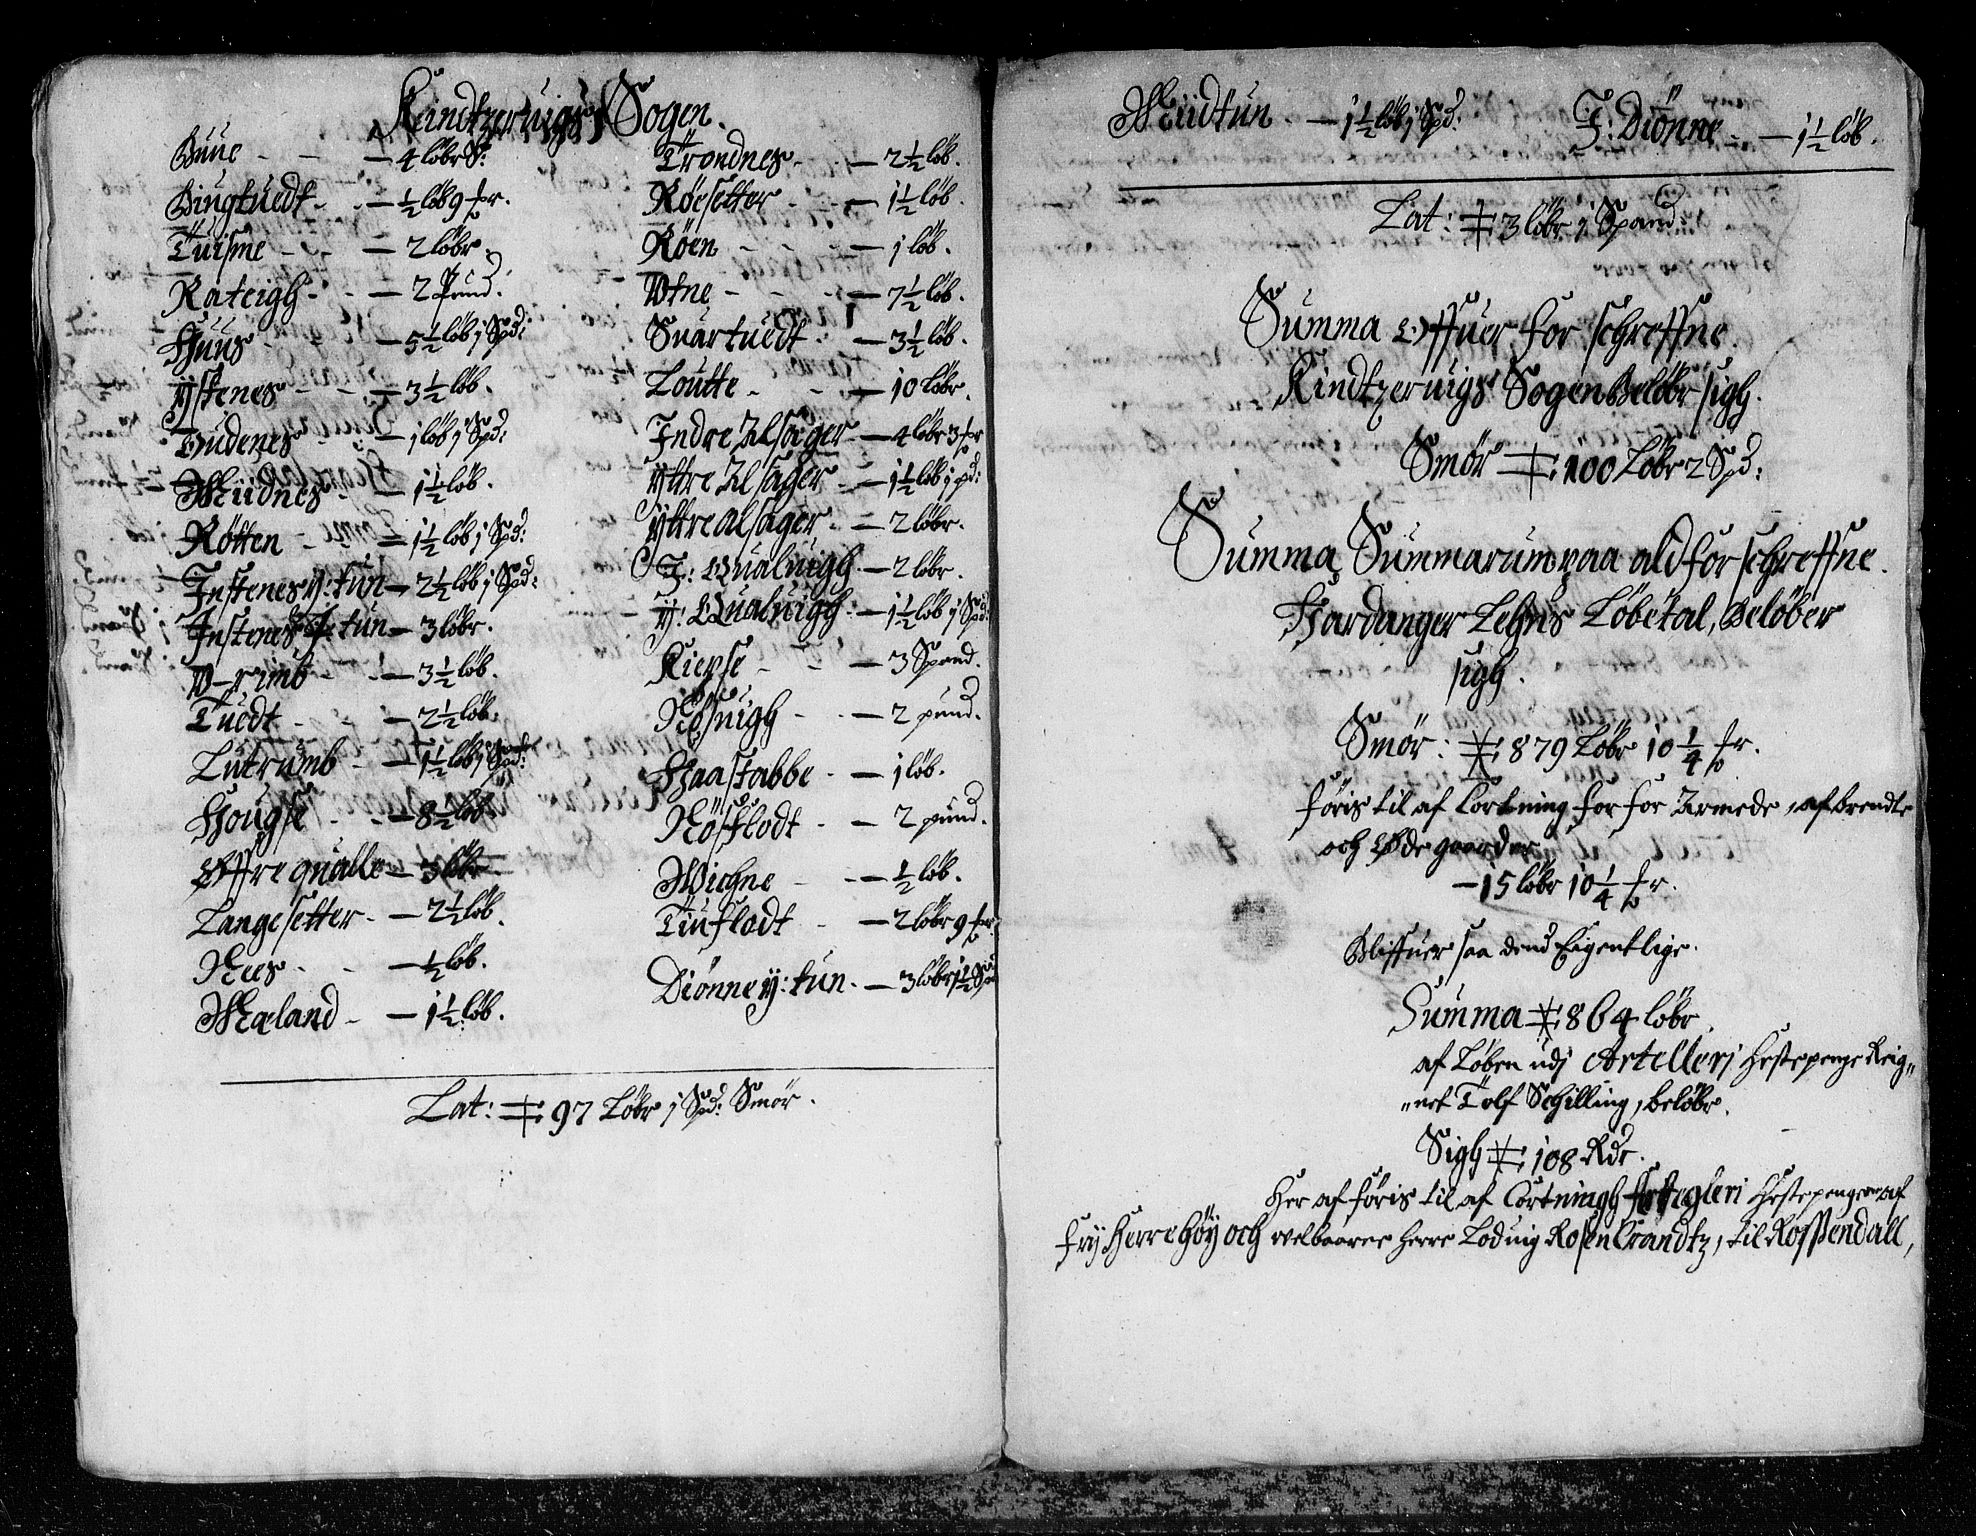 Kindtzeruigs Sogen.
Buue - - - 4 løbr S:
Bingtuedt - - ½ løb 9 fr.
Tuisme - - - 2 løbr.
Rateigh - - - 2 Pund.
Huus - - 5½ løb j Spd:
ystenes - - 3½ løb.
Gudenes - - 1 løb j Spd:
Miidnes - - 1½ løb.
Røtten - - 1½ løb j Spd:
Instenes y: tun - 2½ løb j Spd:
Instenes I: tun - 3 løbr.
Vrimb - - 3½ løb.
Tuedt - - 2½ løb.
Lutrumb - - 1½ løb j Spd:
Hougse - - 8½ løb
Offre qualle - 3 løbr.
Langesetter - - 2½ løb.
Nees - - ½ løb.
Mæland - - 1½ løb.
Trondnes - - 2½ løb.
Røesetter - - 1½ løb.
Røen - - - 1 løb.
Vtne - - - 7½ løb.
Suartuedt - - 3½ løb.
Loutte - - 10 Løbr.
Indre Alsager - 4 løbr 3 fr
yttre Alsager - - 1½ løb j pd:
yttre alsager - - 2 løbr.
I: Qualuigh - 2 løbr.
y: Qualuigh - 1½ løb j Spd:
Kierse - - - 3 Spand.
Nesuigh - - 2 pund.
Haastabbe - - 1 løb.
Nøsflodt - - 2 pund.
Wichne - - - ½ løb.
Tiuflodt - - 2 løbr 9 fr.
Diønne y: tun - 3 løbr 1½ Spd
Lat: 97 Løbr j Spd: Smør.
Miidtun - - 1½ løb j Spd: I: Diønne - - 1½ løb.
Lat: 3 løbr j Spand.
Summa Offuer for schreffne
Kindtzeruigs Sogen Beløbr sigh.
Smør 100 Løbr 2 Spd:
Summa Summarum paa ald for schreffne
Hardanger Lehns Løbetal, Beløber
sigh.
Smør: 879 Løbr 10¼ fr.
føris til af Cortning for for Armede, afbrendte
och Øde gaarder
- 15 løbr 10¼ fr.
Bliffuer saa dend Eigentlige.
Summa 864 løbr
af Løben udj Artelleri Hestepenge Reig„
„net Tolf Schilling, beløbr.
Sigh 108 Rdr.
Her af føris til af Cortningh Hestepengene af
fry Herre höy och welbaarne Herre Loduig RosenCrandtz, til Rossendall,